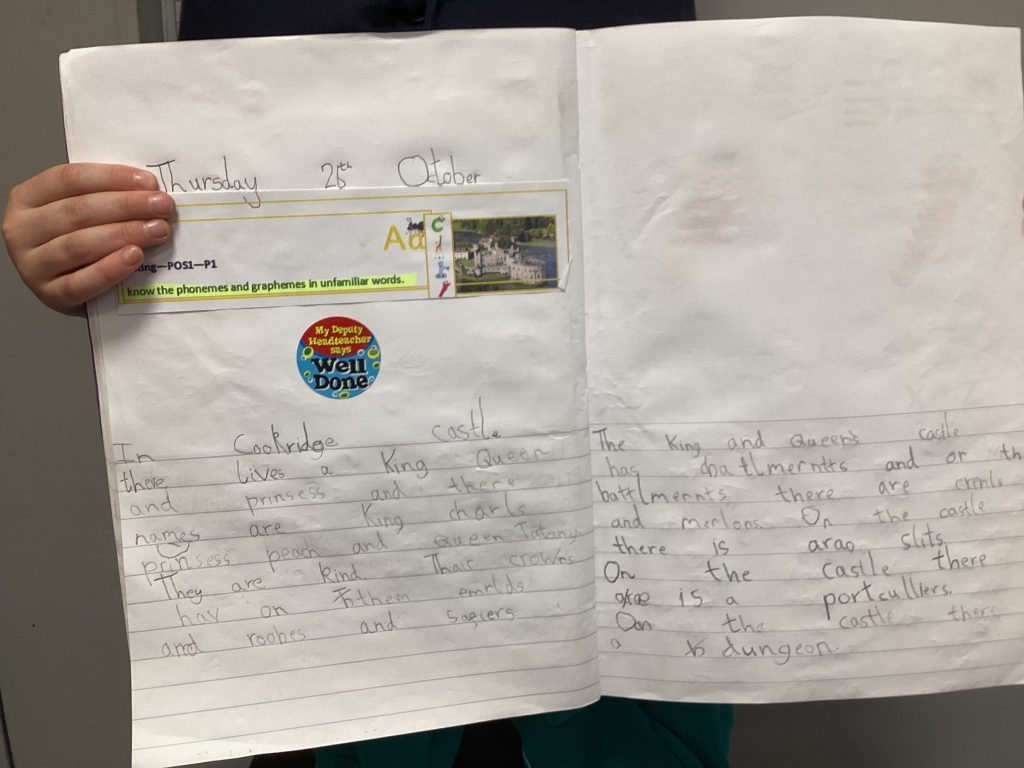 Thursday 26th October
Aa
ing—POS1—P1
know the phonemes and graphemes in unfamiliar words.
My Deputy
Headteacher
says
Well
Done
In Cookridge castle
there lives a King Queen
and prinsess and there
names are King charls
prinsess peach and Queen
They are kind. Thair crowns
hav on them emrlds
and roobes and
The King and Queen's castle
has and or th
battlmernnts there are crenls
and merlons. On the castle
there is arao slits
On the castle there
is a portculliers.
On the castle there
a dungeon.